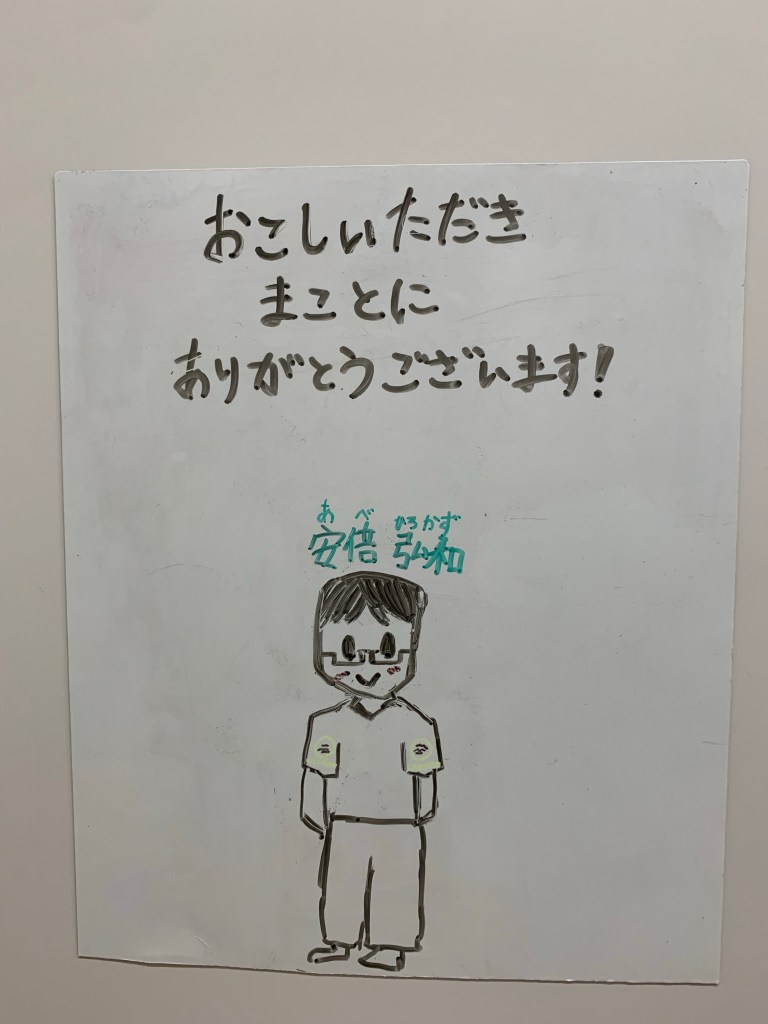 おこしいただき
まことに
ありがとうございます!
あべ ひろかず
安倍 弘和